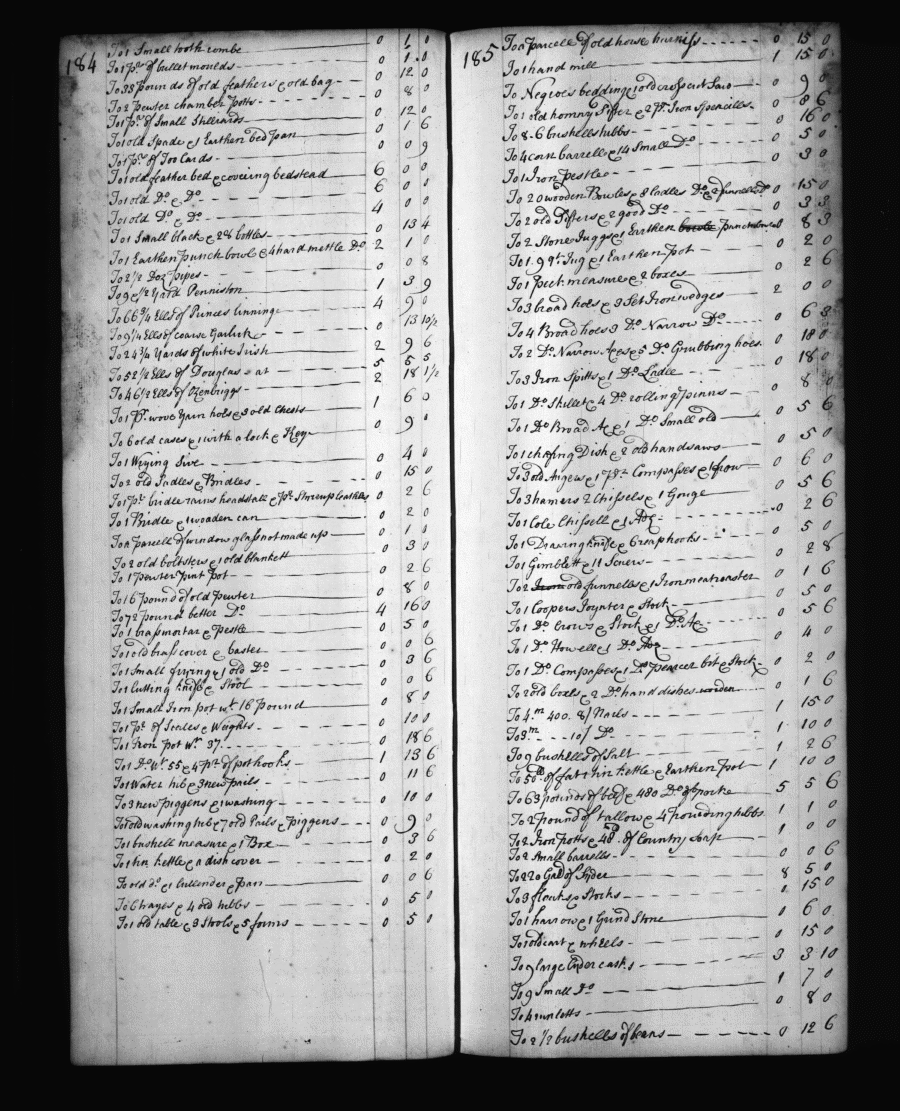 184
To 1 Small tooth combe 0 1 0
To 1 pr. of bullet moulds 0 1 0
To 38 pounds of old feathers & old bag 0 12 0
To 2 pewter chamber potts 0 8 0
To 1 pr. of Small Stilliards 0 12 0
To 1 old Spade & 1 Earthen bed pan 0 1 6
To 1 pr. of Too Cards 0 0 9
To 1 old feather bed & covering bedstead 6 0 0
To 1 old Do. & Do. 6 0 0
To 1 old Do. & Do. 4 0 0
To 1 Small black & 28 bottles 0 13 4
To 1 Earthen punch bowl & 4 hard mettle Do. 2 1 0
To 2 1/2 Doz pipes 0 0 8
To 9 & 1/2 Yard Penniston 1 3 9
To 66 3/4 Ells of Princes linning 4 9 0
To 9 1/4 Ells of coarse Garlick 0 13 10 1/2
To 24 3/4 Yards of white Irish 2 9 6
To 52 1/2 Ells of Douglas & at 5 5 5
To 46 1/2 Ells of Ozenbriggs 2 18 1/2
To 1 Pr. wove Yarn hose & 3 old Chests 1 6 0
To 6 old cases & 1 with a lock & Key 0 9 0
To 1 Wrying Sive 0 4 0
To 2 old Sadles & Bridles 0 15 0
To 1 pr. bridle rains headstall & pr. Stirrup leathers 0 2 6
To 1 Bridle & 1 wooden can 0 2 0
To a parcell of window glass not made up 0 1 0
To 2 old bolsters & 1 old blankett 0 3 0
To 1 pewter pint pot 0 2 6
To 16 pound of old pewter 0 8 0
To 72 pound better Do. 4 16 0
To 1 brass mortar & pestle 0 5 0
To 1 old brass cover & caster 0 0 6
To 1 Small frying & 1 old Do. 0 3 6
To 1 Cutting knife & Stool 0 0 6
To 1 Small Iron pot wt. 16 pound 0 8 0
To 1 pr. of Scales & Weights 0 10 0
To 1 Iron pot Wt. 37 0 18 6
To 1 Do. Wt. 55 & 4 pr. of pothooks 1 13 6
To 1 Water tub & 3 new pails 0 11 6
To 3 new piggens & 1 washing 0 10 0
To 1 old washing tub & 7 old Pails & piggens 0 9 0
To 1 bushell measure & 1 Box 0 3 6
To 1 tin kettle & a dish cover 0 2 0
To old do. & 1 Cullender & pan 0 0 6
To 6 trayes & 4 old tubbs 0 5 0
To 1 old table & 3 Stools & 5 forms 0 5 0
185
To a parcell of old horse harniss 0 15 0
To 1 hand mill 1 15 0
To Negroes bedding & 1 old crosscut Saw 0 9 0
To 1 old hominy Sifter & 2 pr. Iron Spancills 0 8 6
To 8-6 bushells tubbs 0 16 0
To 4 corn barrell & 14 Small Do. 0 5 0
To 1 Iron Pestle 0 3 0
To 20 wooden Bowles & 8 ladles Do. & 2 funnells Do. 0 15 0
To 2 old Sifters & 2 good Do. 0 3 3
To 2 Stone Juggs & 1 Earthen 0 8 3
To 1. 9 qt. Jug & 1 Earthen Pot 0 2 0
To 1 peck measure & 2 boxes 0 2 6
To 3 broad hoes & 3 Set Iron wedges 2 0 0
To 4 Broad hoes 3 Do. Narrow Do. 0 6 3
To 2 Do. Narrow Axes & 5 Do. Grubbing hoes 0 18 0
To 3 Iron Spitts & 1 Do. Ladle 0 18 0
To 1 Do. Skillet & 4 Do. rolling pinns 0 8 0
To 1 Do. Broad Ax & 1 Do. Small old 0 5 6
To 1 chafing Dish & 2 old handsaws 0 5 0
To 3 old Augers & 1 pr. Compasses & 1 frow 0 6 0
To 3 hamers 2 Chissels & 1 Gouge 0 5 6
To 1 Cole Chissell & 1 Adz 0 2 6
To 1 Drawing knife & 6 reaphooks 0 5 0
To 1 Gimblett & 11 Scives 0 2 8
To 2 Iron old funnells & 1 Iron meat roaster 0 1 6
To 1 Coopers Joynter & Stock 0 5 0
To 1 Do. Crows & Stock & 1 Do. Ax 0 5 6
To 1 Do. Howell & 1 Do. Adz 0 4 0
To 1 Do. Compasses & 1 Do. peircer bit & Stock 0 2 0
To 2 old boxes & 2 Do. hand dishes wooden 0 1 6
To 4m 400. 8/ Nails 1 15 0
To 3m 10/ Do. 1 10 0
To 9 bushells of Salt 1 2 6
To 50 lb of fat 1 tin kettle & Earthen Pot 1 10 0
To 63 pounds of beef & 480 Do. of porke 5 5 6
To 2 pound of tallow & 4 powdering tubbs 1 1 0
To 2 Iron Potts & 48 lb. of Country Soap 1 0 0
To 2 Small barrells 0 0 6
To 220 Gall of Syder 8 5 0
To 3 flouks & Stocks 1 15 0
To 1 harrow & 1 Grind Stone 0 6 0
To 1 old cart & wheels 0 15 0
To 9 large Cyder casks 3 3 10
To 9 Small Do. 1 7 0
To 4 runlotts 0 8 0
To 2 1/2 bushells of beans 0 12 6